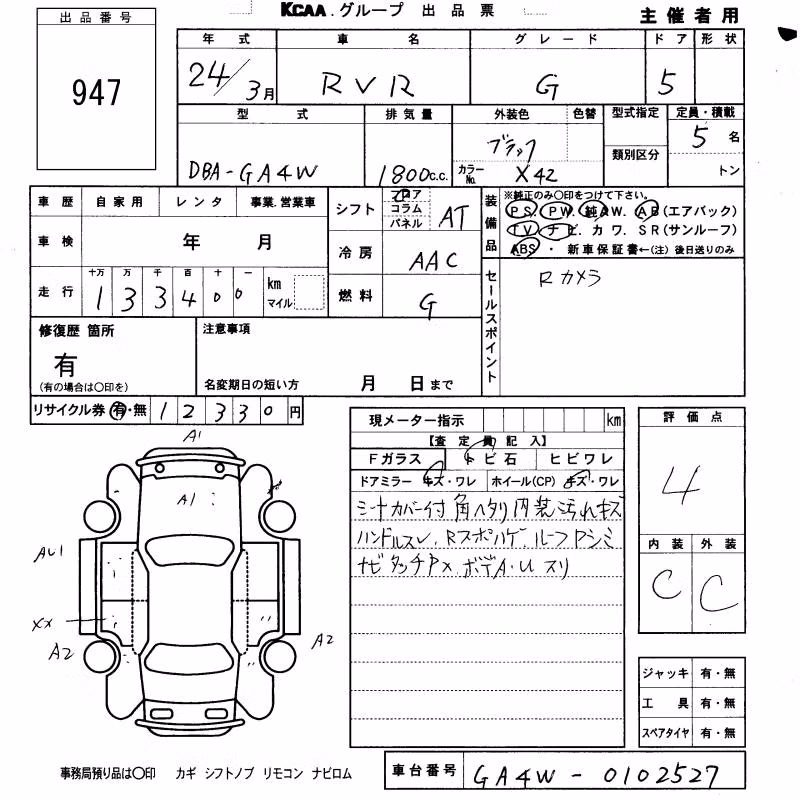 KCAA.グループ 出品票
主催者用
出品番号
947
年式 車名 グレード ドア 形状
24/3月 RVR G 5
型式 排気量 外装色 色替 型式指定 定員・積載
DBA-GA4W 1800c.c. ブラック 5名
カラーNo. X42 類別区分 トン
車歴 自家用 レンタ 事業.営業車
車検 年 月
走行 十万 万 千 百 十 一
1 3 3 4 0 0 km マイル
シフト フロア コラム パネル AT
冷房 AAC
燃料 G
装備品 ※純正のみ○印をつけて下さい。
PS. PW. 純AW. AB(エアバック)
TV. ナビ. カワ. SR(サンルーフ)
ABS・ 新車保証書←(注)後日送りのみ
セールスポイント Rカメラ
修復歴 箇所
有
(有の場合は○印を)
注意事項
名変期日の短い方 月 日まで
リサイクル券 有・無 1 2 3 3 0 円
現メーター指示 km
【査定員記入】
Fガラス トビ石 ヒビワレ
ドアミラー キズ・ワレ ホイール(CP) キズ・ワレ
シートカバー付 角ヘタリ 内装汚れキズ
ハンドルスレ. Rスポハゲ. ルーフPシミ
ナビタッチPX. ボデA・U スリ
評価点
4
内装 外装
C C
A1
A1
AU1
XX
A2
A2
ジャッキ 有・無
工具 有・無
スペアタイヤ 有・無
事務局預り品は○印 カギ シフトノブ リモコン ナビロム
車台番号 GA4W-0102527